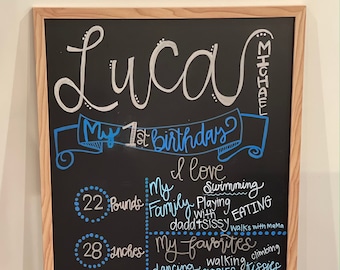 Luca
MICHAEL
My 1st birthday
I love
My
Family
Swimming
Playing
with
dadd+sissy
EATING
Walks with MaMa
22 Pounds
28 Inches
My favorites
dancing
walking
climbing
kissies